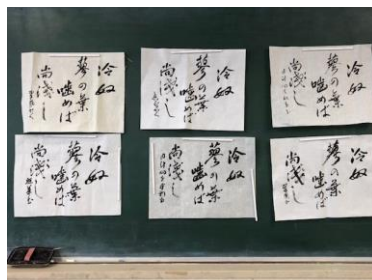 冷奴
蓼の葉
噛めば
尚淺し
冷奴
蓼の葉
噛めば
尚淺し
冷奴
蓼の葉
噛めば
尚淺し
冷奴
蓼の葉
噛めば
尚淺し
冷奴
蓼の葉
噛めば
尚淺し
冷奴
蓼の葉
噛めば
尚淺し